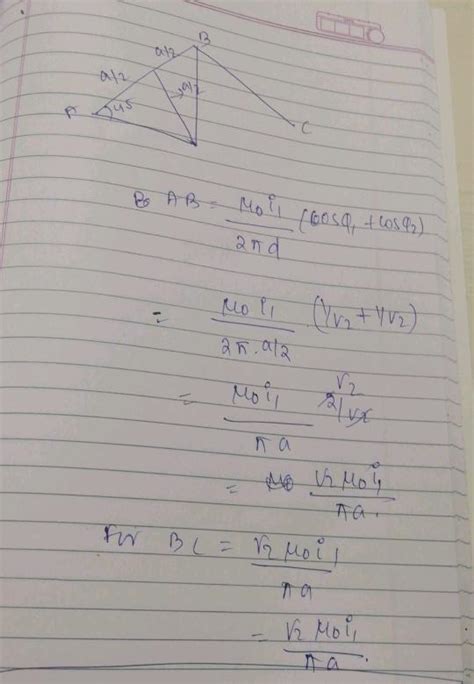 B
a/2
a/2
a/2
A
45
C
B AB = μ₀i₁/2πd (cosφ₁ + cosφ₂)
= μ₀i₁/2π.a/2 (1/√2 + 1/√2)
= μ₀i₁/πa 2/√2 √2
= √2 μ₀i₁/πa
For BC = √2 μ₀i₁/πa
= √2 μ₀i₁/πa.